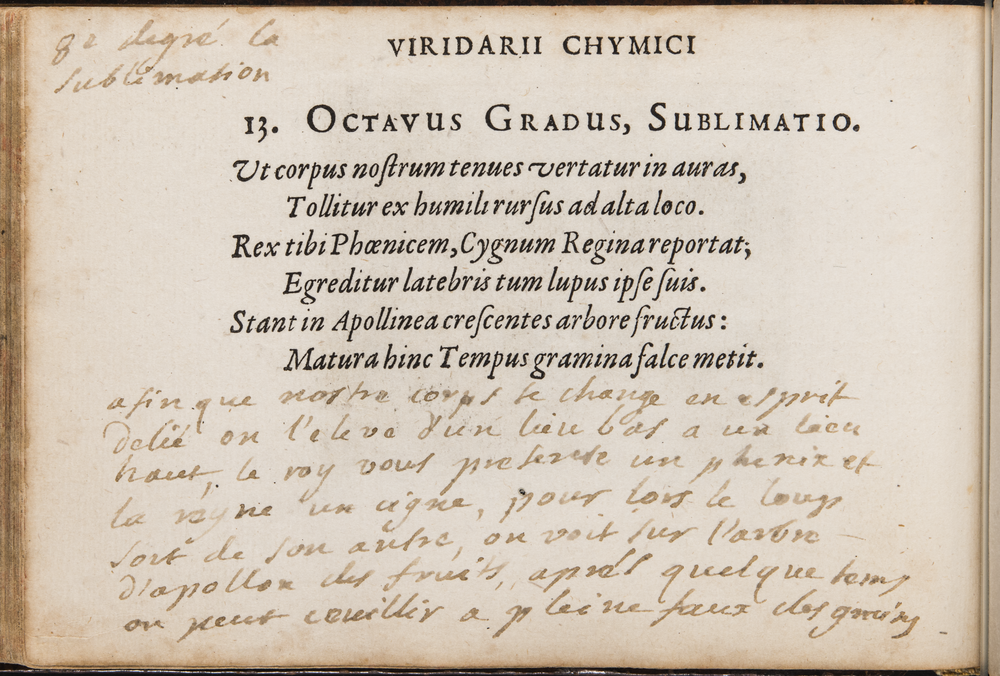 8e degré la
sublimation
VIRIDARII CHYMICI
13. OCTAVUS GRADUS, SUBLIMATIO.
Ut corpus noſtrum tenues vertatur in auras,
Tollitur ex humili rurſus ad alta loco.
Rex tibi Phœnicem, Cygnum Regina reportat;
Egreditur latebris tum lupus ipſe ſuis.
Stant in Apollinea creſcentes arbore fructus:
Matura hinc Tempus gramina falce metit.
afin que nostre corps se change en esprit
delié on l'eleve d'un lieu bas a un lieu
haut, le roy vous presente un phenix et
la reyne un cigne, pour lors le loup
sort de son antre, on voit sur l'arbre
d'apollon des fruits, aprés quelque temps
on peut ceuillir a pleine faux des grains